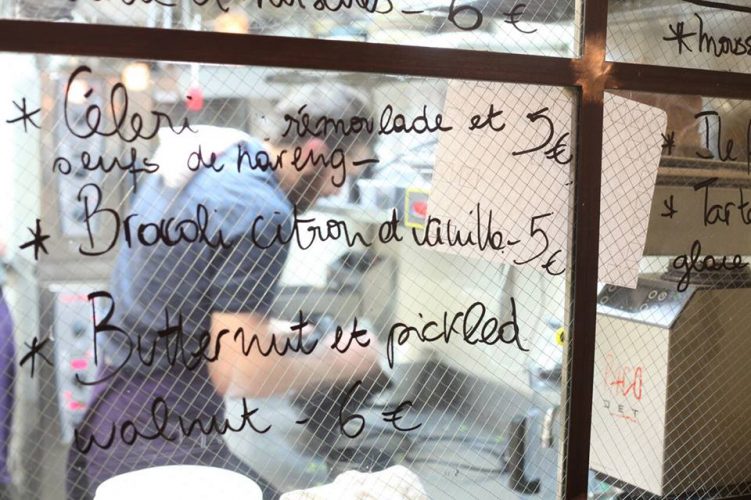 6 €
* Céleri rémoulade et 5€
oeufs de hareng -
* Brocoli citron et vanille - 5€
* Butternut et pickled
walnut - 6 €
* Tarta